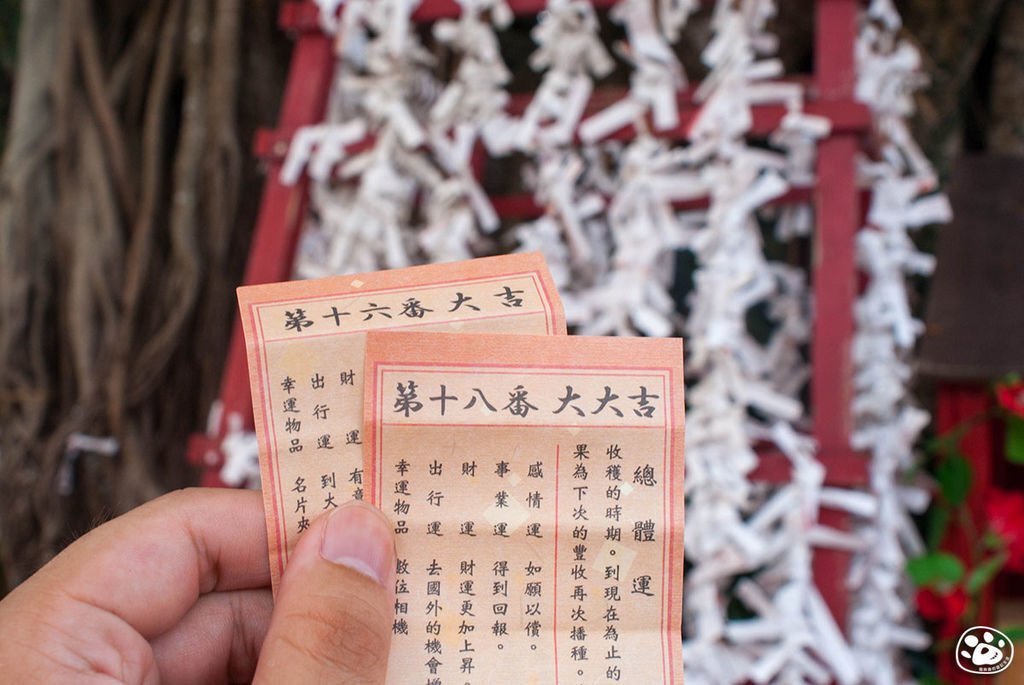 第十六番 大吉
財運 有
出行運 到大
幸運物品 名片夾
第十八番 大大吉
總體運
收穫的時期。到現在為止的
果為下次的豐收再次播種。
感情運 如願以償。
事業運 得到回報。
財運 財運更加上昇。
出行運 去國外的機會增
幸運物品 數位相機